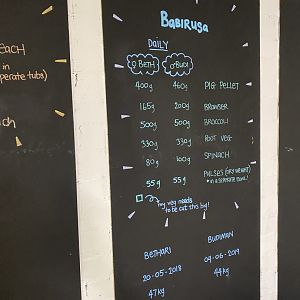 each
in
perate tubs)
ch
Babirusa
DAILY
♀ BETH ♂ BUDI
400g 460g PIG PELLET
165g 200g BROWSER
500g 500g BROCCOLI
330g 330g ROOT VEG
80g 100g SPINACH
55g 55g PULSES (DRY WEIGHT)
* in a seperate bowl!
my veg needs
to be cut this big!
BETHARI BUDIMAN
20-05-2018 09-06-2019
47kg 44kg